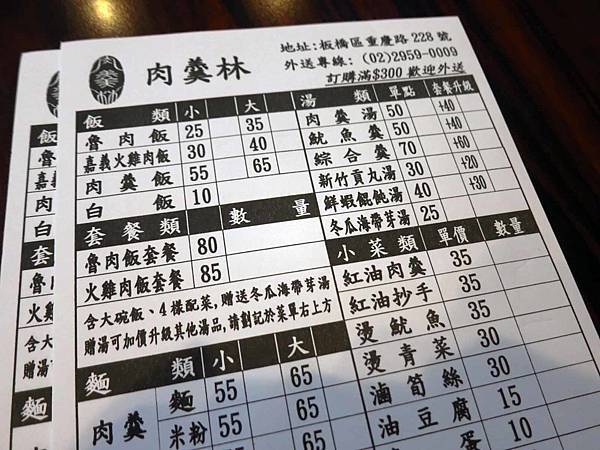 肉羹林
地址:板橋區重慶路228號
外送專線:(02)2959-0009
訂購滿$300歡迎外送
飯類 小 大
魯肉飯 25 35
嘉義火雞肉飯 30 40
肉羹飯 55 65
白飯 10
套餐類 數量
魯肉飯套餐 80
火雞肉飯套餐 85
含大碗飯、4樣配菜,贈送冬瓜海帶芽湯
贈湯可加價升級其他湯品,請劃記於菜單右上方
麵類 小 大
肉羹
麵 55 65
米粉 55 65
55 65
湯類 單點 套餐升級
肉羹湯 50 +40
魷魚羹 50 +40
綜合羹 70 +60
新竹貢丸湯 30 +20
鮮蝦餛飩湯 40 +30
冬瓜海帶芽湯 25
小菜類 單價 數量
紅油肉羹 35
紅油抄手 35
燙魷魚 35
燙青菜 30
滷筍絲 30
油豆腐 15
蛋 10
飯
魯
嘉義
肉
白
套
魯肉
火雞
含大
贈湯
麵